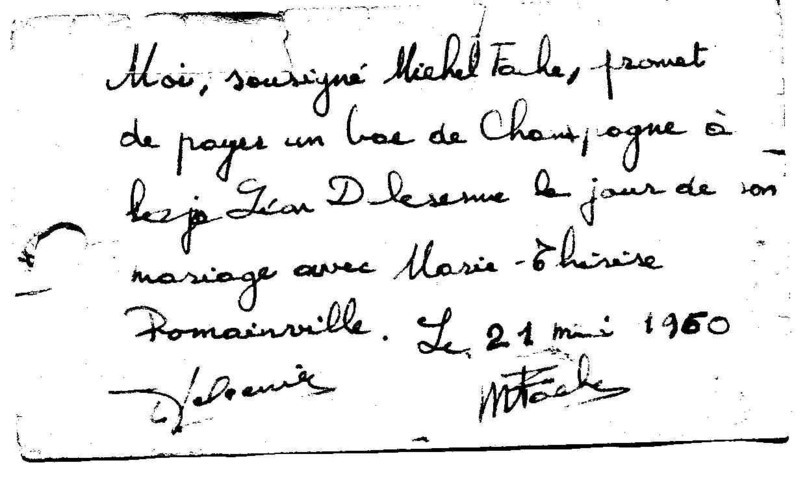 Moi, sousigné Michel Fache, promet
de payer un bac de Champagne à
Léon D lesenne le jour de son
mariage avec Marie-Thérèse
Romainville. Le 21 mai 1960
MFache